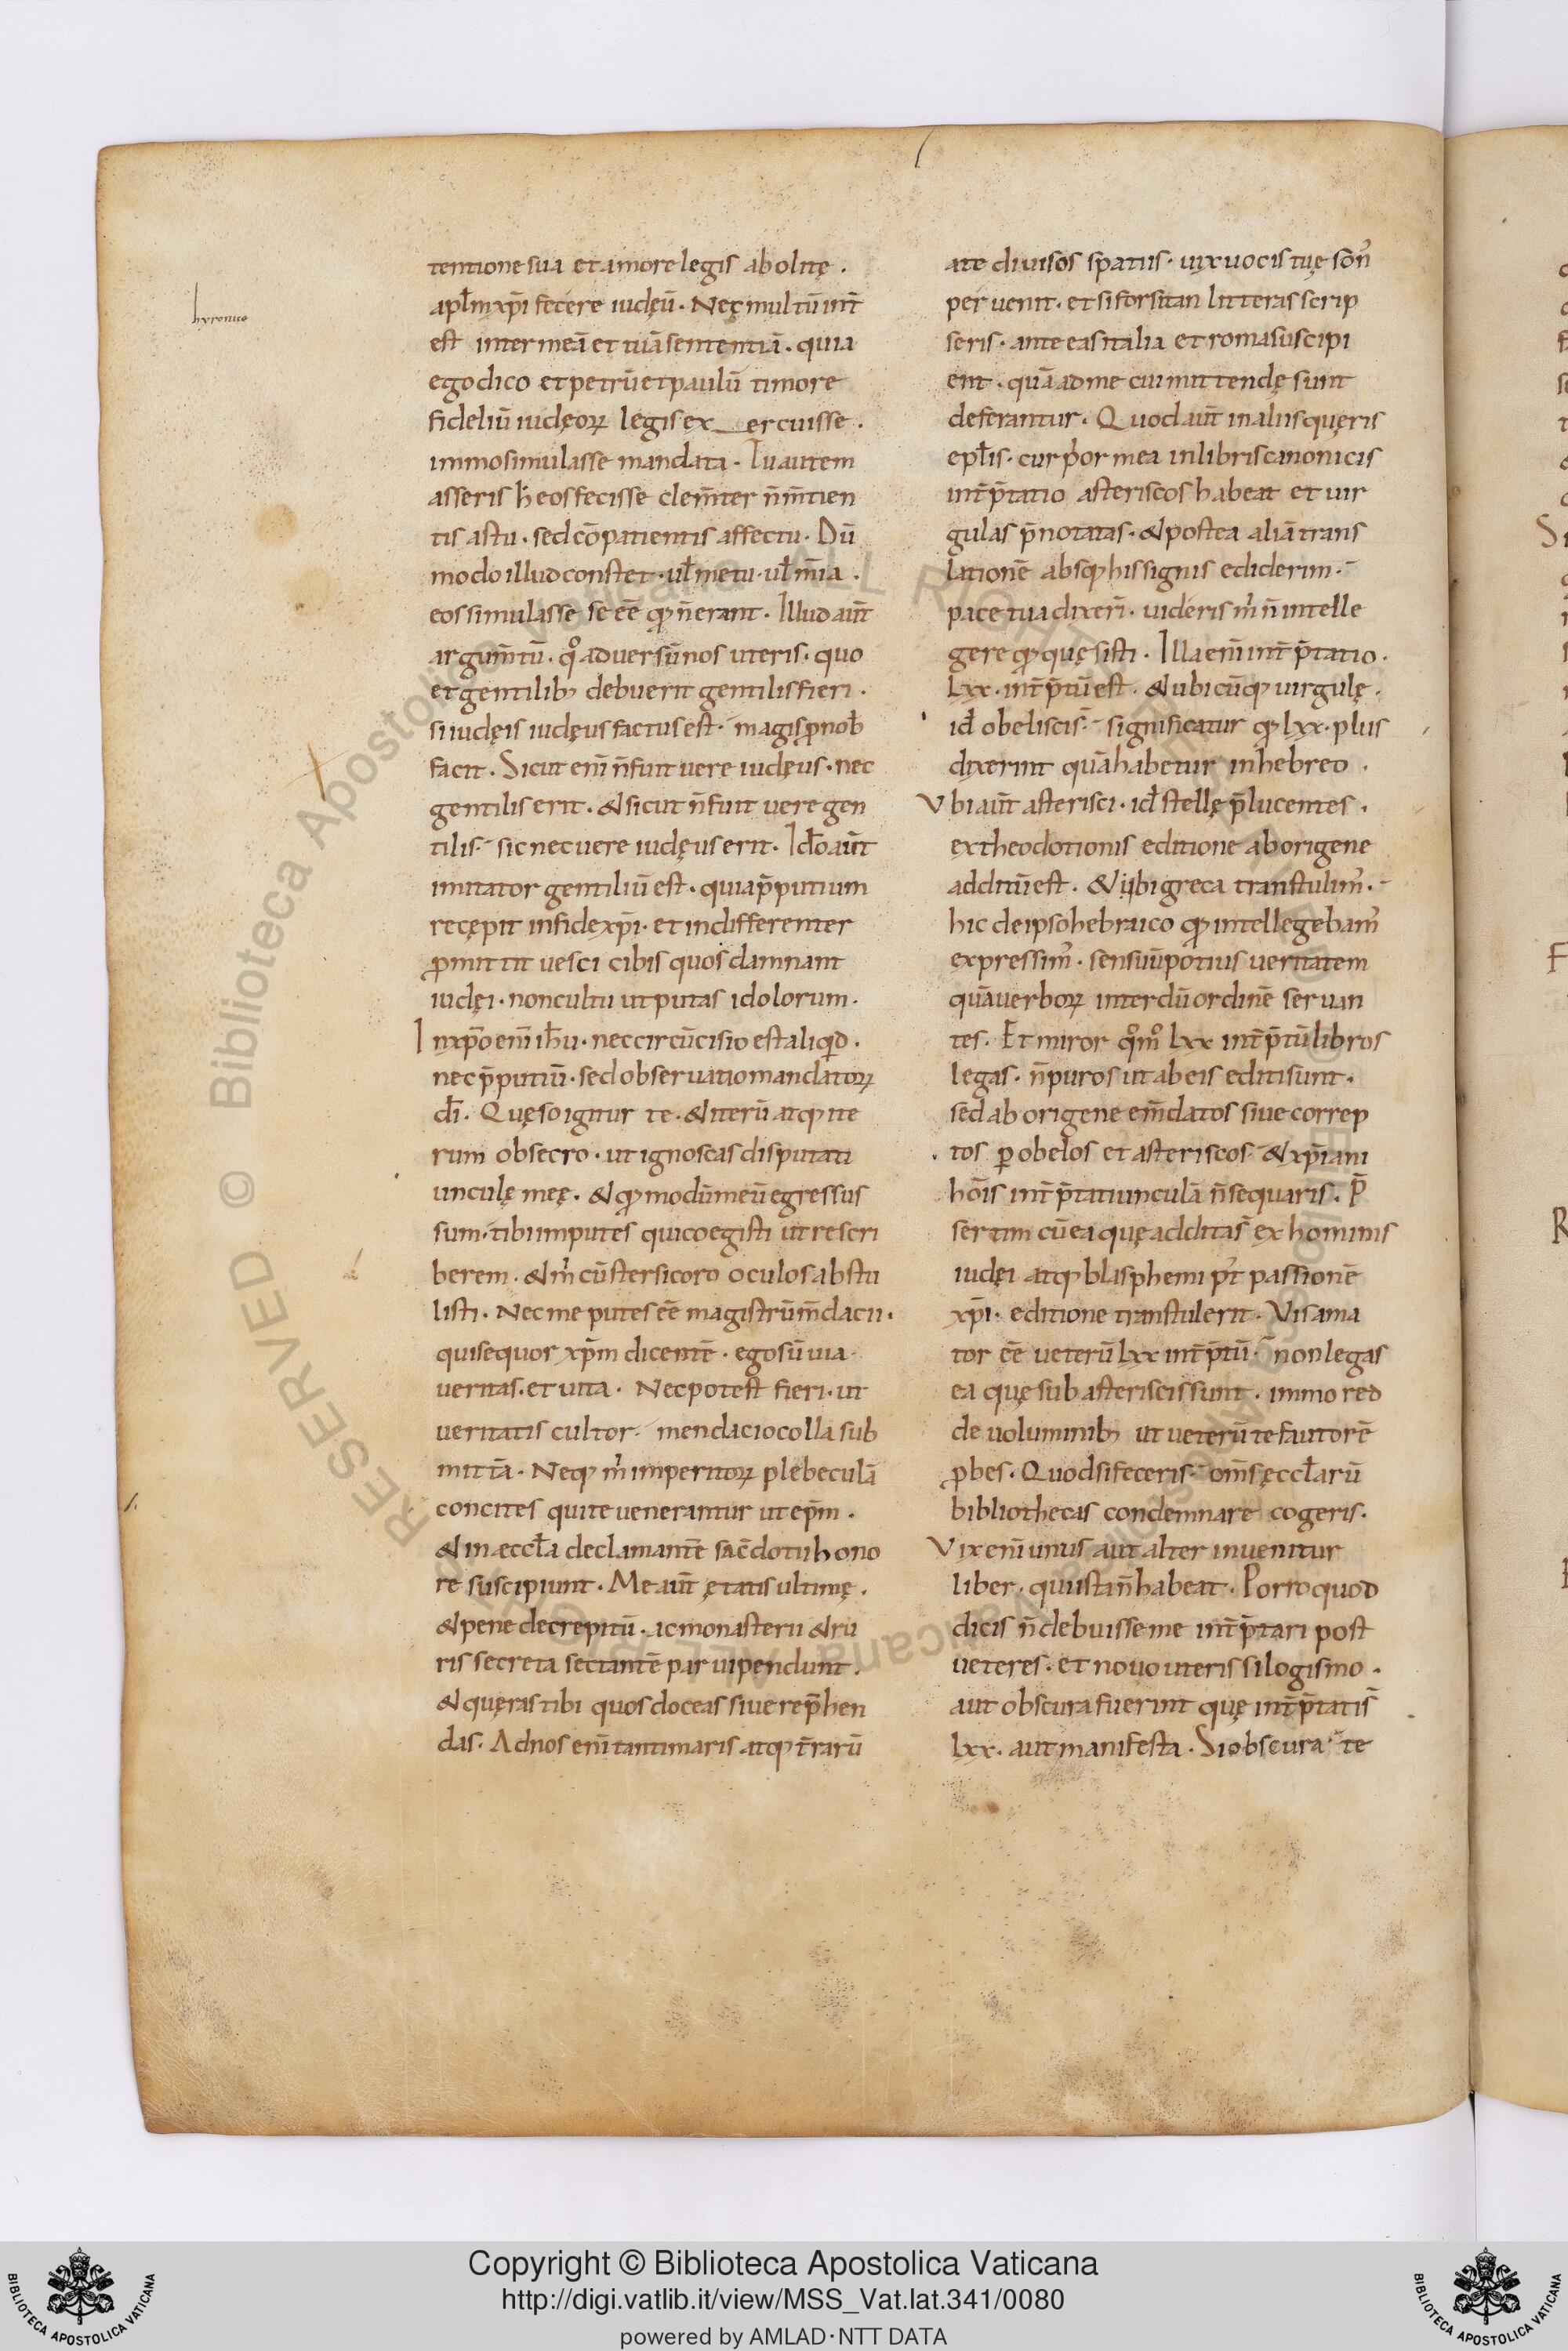 hyronico
tentione sua et amore legis abolitę .
apl̄m xp̄i fecere iudęū . Nec multū int̄
est inter meā et tuā sententiā . quia
ego dico et petrū et paulū timore
fideliū iudęoꝝ legis ex__ercuisse .
immo simulasse mandata . Tu autem
asseris h̄ eos fecisse clem̄ter n̄ m̄tien
tis astu . sed cōpatientis affectu . Dū
modo illud constet . ul̄ metu . ul̄ m̄ia .
eos simulasse se eē qđ n̄ erant . Illud aūt
argum̄tū . qͦ aduersū nos uteris . quo
et gentilib; debuerit gentilis fieri .
si iudęis iudęus factus est . magis ꝓ nob̄
facit . Sicut enī n̄ fuit uere iudęus . nec
gentilis erit . & sicut n̄ fuit uere gen
tilis . sic nec uere iudęus erit . Id̄o aūt
imitator gentiliū est . quia p̄putium
recępit in fide xp̄i . et indifferenter
ꝑmittit uesci cibis quos damnant
iudęi . non cultu ut putas idolorum .
In xp̄o enī ih̄u . nec circūcisio est aliqd .
nec p̄putiū . sed obseruatio mandatoꝝ
dī . Quęso igitur te . & iterū atq; ite
rum obsecro . ut ignoscas disputati
unculę meę . & qđ modū meū egressus
sum . tibi imputes qui coegisti ut rescri
berem . & m̄ cū stersicoro oculos abstu
listi . Nec me putes eē magistrū m̄dacii .
qui sequor xp̄m dicentē . ego sū uia
ueritas . et uita . Nec potest fieri . ut
ueritatis cultor . mendacio colla sub
mittā . Neq; m̄ imperitoꝝ plebeculā
concites qui te uenerantur ut ep̄m .
& in æccl̄a declamantē sac̄dotii hono
re suscipiunt . Me aūt ętatis ultimę .
& pene decrepitū . ac monasterii & ru
ris secreta sectantē paruipendunt .
& quęras tibi quos doceas siue rep̄hen
das . Ad nos enī tanti maris atq; t̄rarū
ate diuisos spatiis . uix uocis tuę son̄
peruenit . et si forsitan litteras scrip
seris . ante eas italia et roma suscipi
ent . quā ad me cui mittendę sunt
deferantur . Quod aūt in aliis quęris
epl̄is . cur prior mea in libris canonicis
int̄p̄tatio asteriscos habeat et uir
gulas p̄notatas . & postea aliā trans
lationē absq; his signis ediderim .
pace tua dixerī . uideris m̄ n̄ intelle
gere qđ quęsisti . Illa enī int̄p̄tatio .
lxx . int̄p̄tū est . & ubicūq; uirgulę .
id̄ obeliscis . significatur qđ lxx . plus
dixerint quā habetur in hebreo .
Vbi aūt asterisci . id̄ stellę p̄lucentes .
ex theodotionis editione ab origene
additū est . & ibi greca transtulim; .
hic de ipso hebraico qđ intellegebam;
expressim; . sensuū potius ueritatem
quā uerboꝝ interdū ordinē seruan
tes . Et miror qͦmͦ lxx int̄p̄tū libros
legas . n̄ puros ut ab eis editi sunt .
sed ab origene em̄datos siue correp
tos ꝑ obelos et asteriscos & xp̄iani
hōis int̄p̄tatiunculā n̄ sequaris . P̄
sertim cū ea quę addita s̄ ex hominis
iudęi atq; blasphemi p̄t passionē
xp̄i . editione transtulerit . Vis ama
tor eē ueterū lxx int̄p̄tū . non legas
ea quę sub asteriscis sunt . immo red
de uoluminib; ut ueterū te fautorē
ꝓbes . Quod si feceris . om̄s ęccl̄arū
bibliothecas condemnare cogeris .
Vix enī unus aut alter inuenitur
liber . qui ista n̄ habeat . Porro quod
dicis n̄ debuisse me int̄p̄tari post
ueteres . et nouo uteris silogismo .
aut obscura fuerint quę int̄p̄tati s̄
lxx . aut manifesta . Si obscura . te
Copyright © Biblioteca Apostolica Vaticana
http://digi.vatlib.it/view/MSS_Vat.lat.341/0080
powered by AMLAD·NTT DATA
BIBLIOTECA APOSTOLICA VATICANA
BIBLIOTECA APOSTOLICA VATICANA